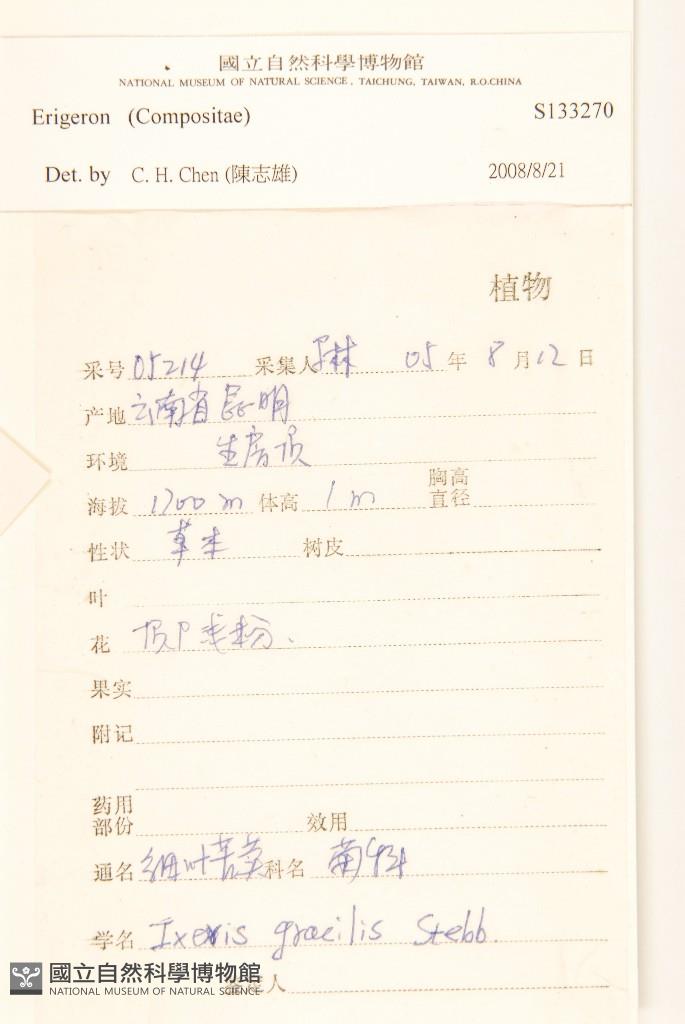 國立自然科學博物館
NATIONAL MUSEUM OF NATURAL SCIENCE, TAICHUNG, TAIWAN, R.O.CHINA
Erigeron (Compositae) S133270
Det. by C. H. Chen (陳志雄) 2008/8/21
植物
采号 05214 采集人 05 年 8 月 12 日
产地 云南省昆明
环境 生房顶
海拔 1700 m 体高 1 m 胸高直径
性状 草本 树皮
叶
花 粉.
果实
附记
药用部份 效用
通名 细叶苦荬 科名 菊科
学名 Ixeris gracilis Stebb.
人
國立自然科學博物館
NATIONAL MUSEUM OF NATURAL SCIENCE